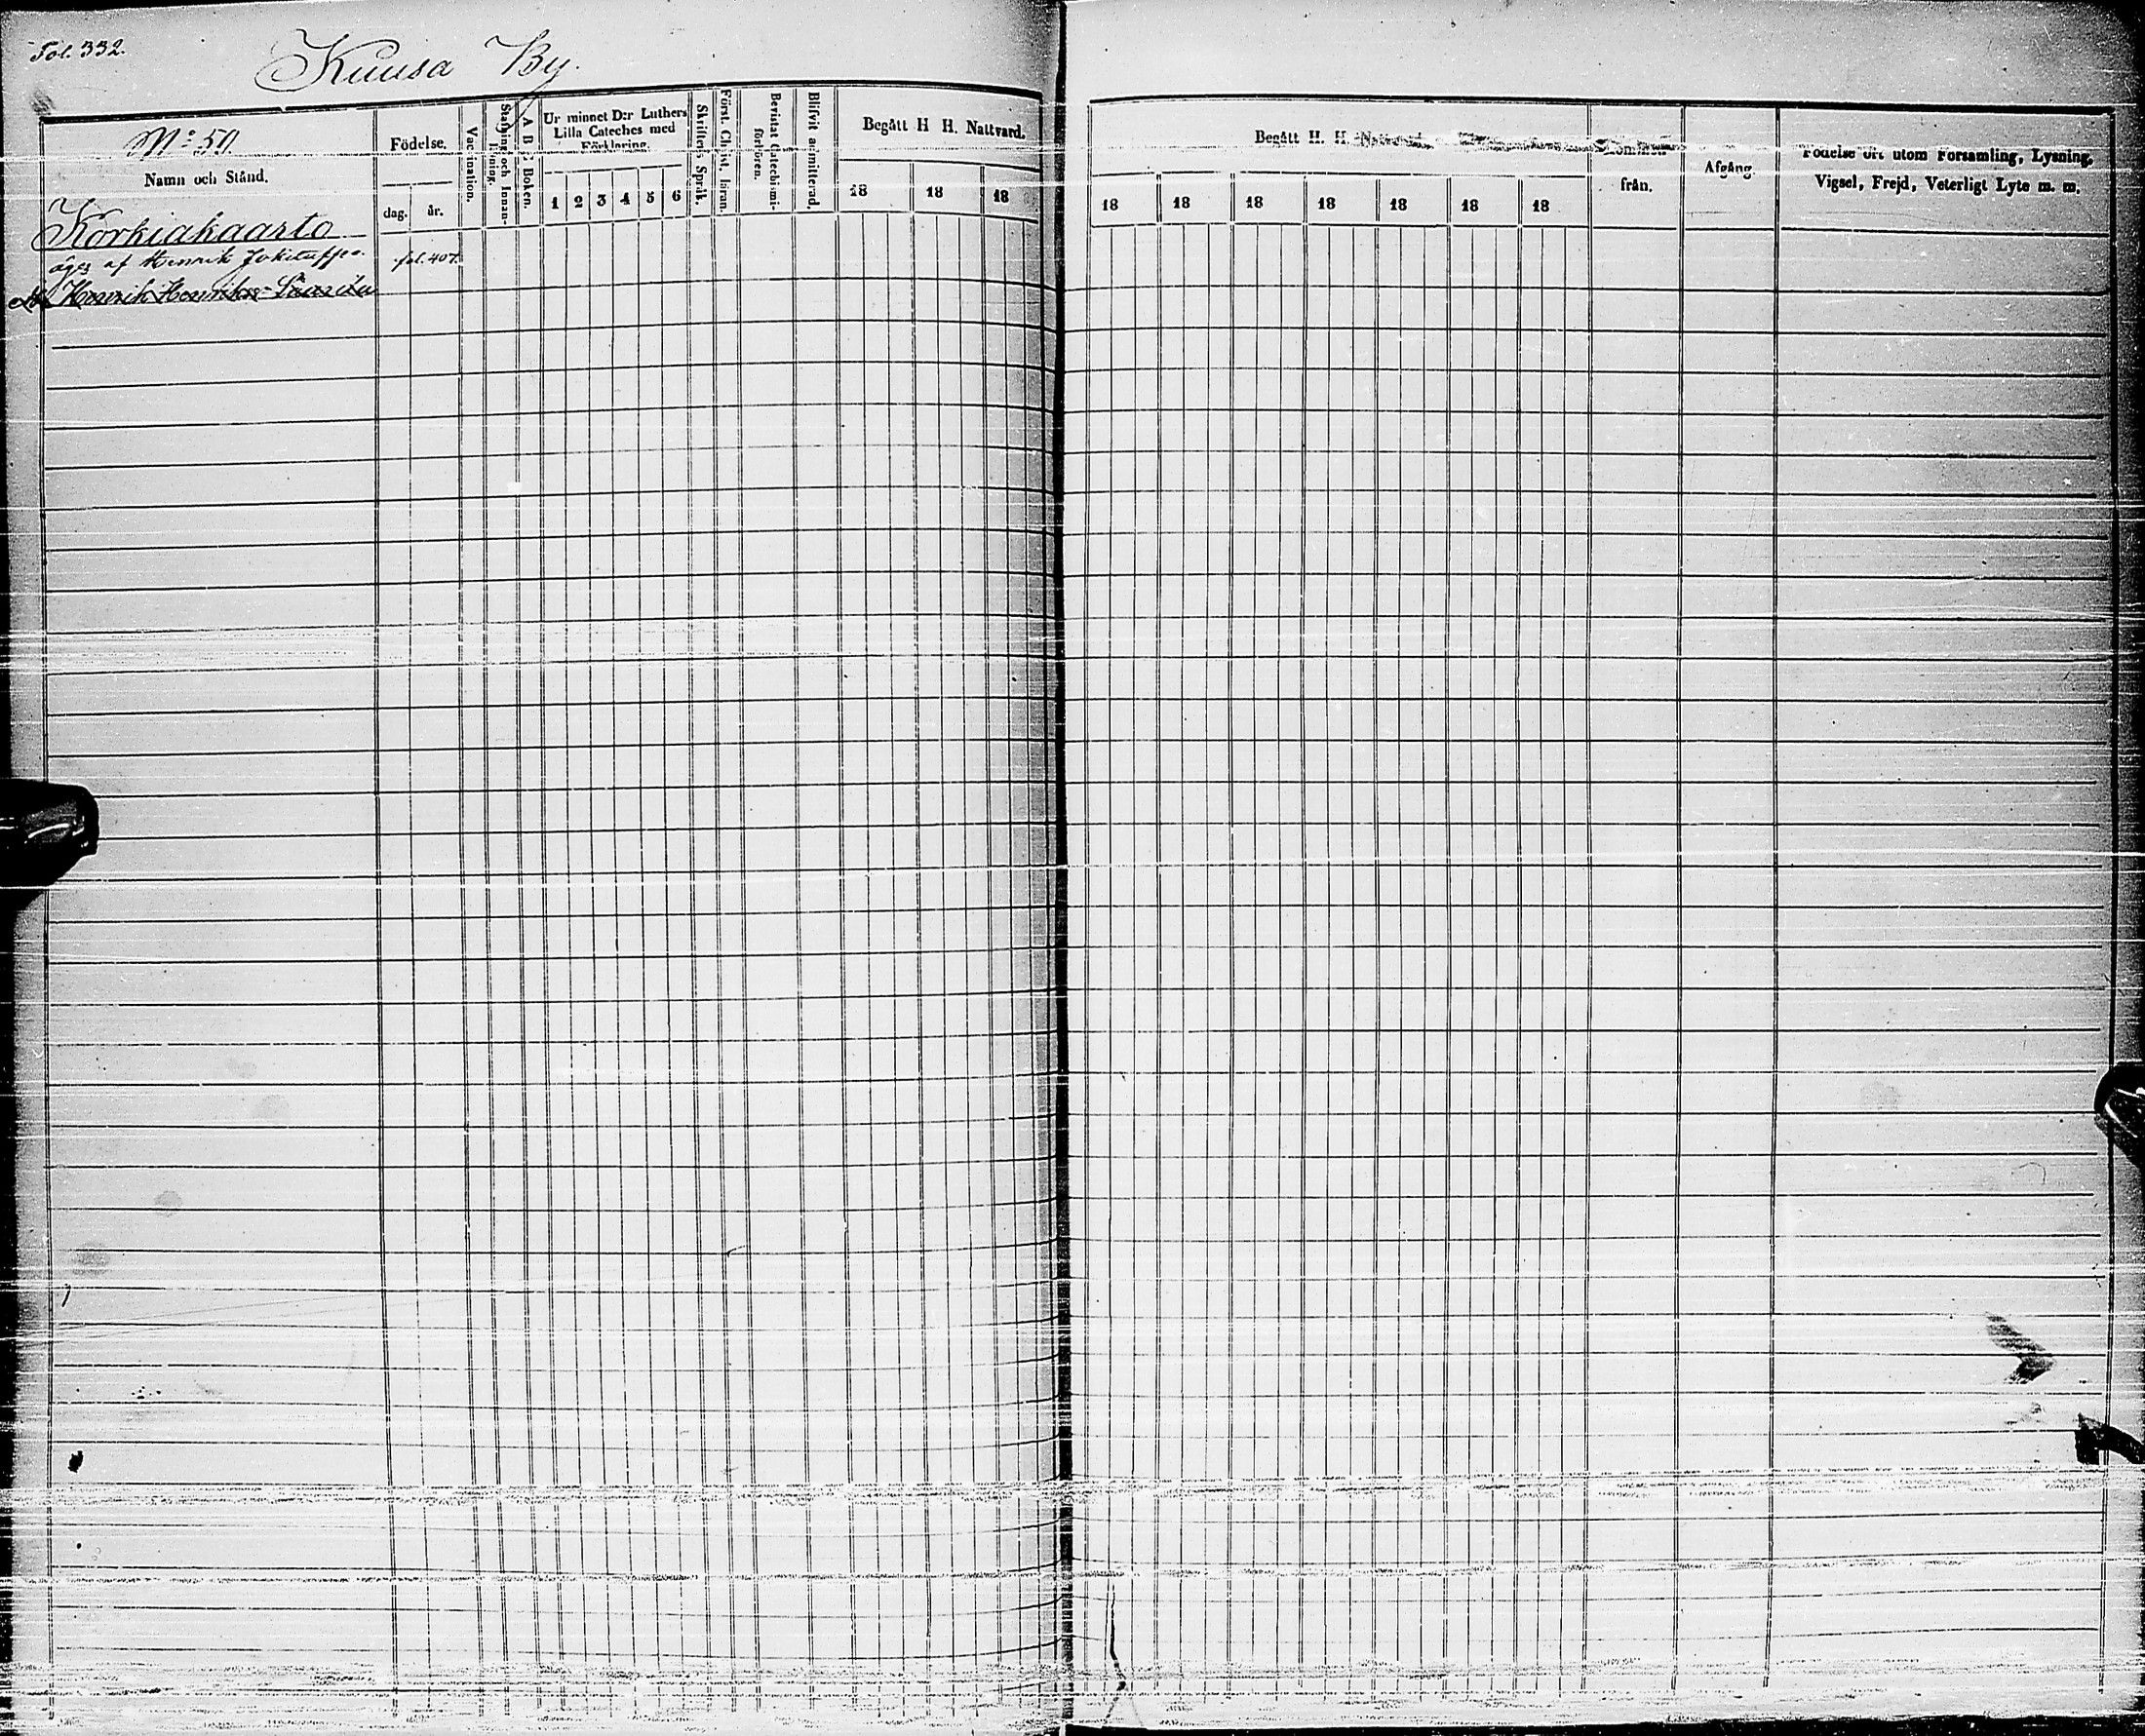 Fol. 332.
Kuusa By.
No 59.
Namn och Stånd.
Födelse.
dag. år.
Vaccination.
Stafning och Innanläsning.
A B C Boken.
Ur minnet D:r Luthers
Lilla Cateches med
Förklaring.
1 2 3 4 5 6
Skriftens Språk.
Först. Christ. läran.
Bevistat Catechismi-
förhören.
Blifvit admitterad.
Begått H H. Nattvard.
18 18 18
Begått H. H. Nattvard.
18 18 18 18 18 18 18
Kommen
från.
Afgång.
Födelse ort utom Församling, Lysning,
Vigsel, Frejd, Veterligt Lyte m. m.
Korkiakaarto
äges af Henrik fol. 407.
Henrik Henriks